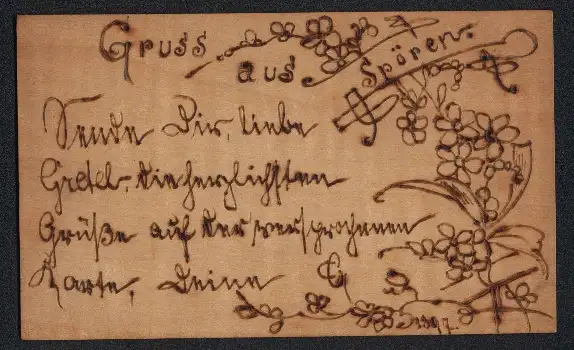 Gruss
aus
Spören.
Sende Dir, liebe
Gretel, die herzlichsten
Grüße auf der versprochenen
Karte, Deine
1897.